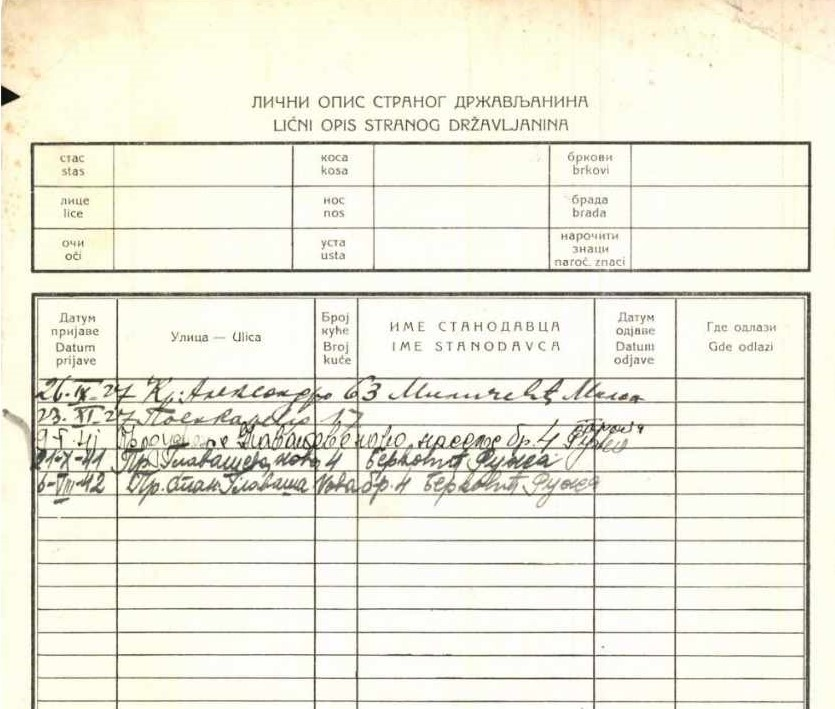 ЛИЧНИ ОПИС СТРАНОГ ДРЖАВЉАНИНА
LIČNI OPIS STRANOG DRŽAVLJANINA
стас
stas
коса
kosa
бркови
brkovi
лице
lice
нос
nos
брада
brada
очи
oči
уста
usta
нарочити
знаци
naroč. znaci
Датум
пријаве
Datum
prijave
Улица — Ulica
Број
куће
Broj
kuće
ИМЕ СТАНОДАВЦА
IME STANODAVCA
Датум
одјаве
Datum
odjave
Где одлази
Gde odlazi
26-IX-27 Кр. Александра 63 Милићевић
23. XI-27 17
бр. 4
21-X-41 Пр. Главашева, нова 4 Берковић Ружа
6-VIII-42 Пр. Стан. Главаша нова бр. 4 Берковић Ружа